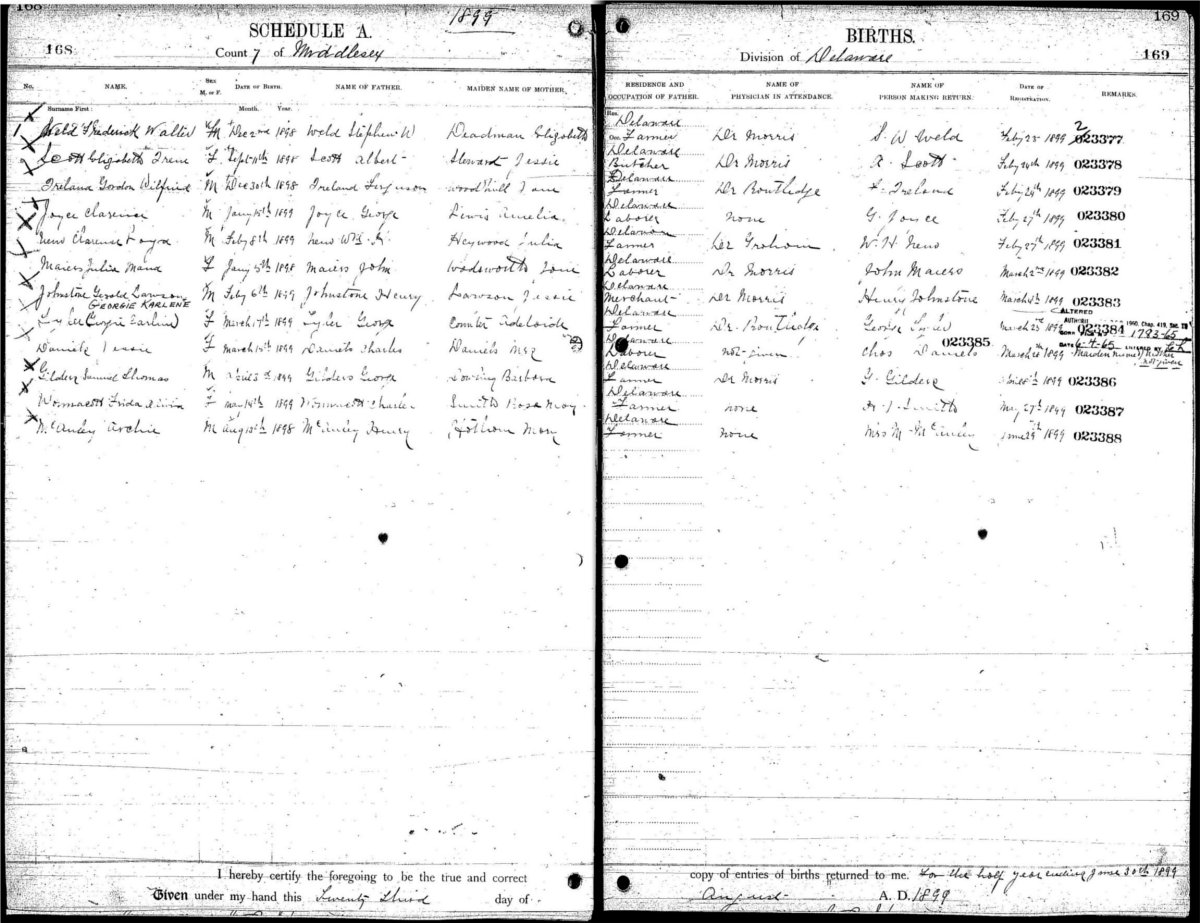 168
1899
SCHEDULE A.
168
County of Middlesex
No. NAME. SEX M. or F. DATE OF BIRTH. NAME OF FATHER. MAIDEN NAME OF MOTHER.
Surname First: Month. Year.
1 Weld Frederick Walter M Dec 2nd 1898 Weld Stephen W Deadman Elizabeth
Scott Elizabeth Irene F Sept 11th 1898 Scott Albert Steward Jessie
Ireland Gordon Wilfrid M Dec 30th 1898 Ireland Ferguson Woodhill
Joyce Clarence M Jany 15th 1899 Joyce George Lewis Amelia
Clarence M Feby 8th 1899 Wm H. Heywood Julia
Maiers Julia Mana F Jany 5th 1898 Maiers John Wadsworth Jane
Johnstone Gerald Lawson M Feby 6th 1899 Johnstone Henry Lawson Jessie
GEORGIE KARLENE
Lyler (Georgie Earline) F March 17th 1899 Lyler George Counter Adelaide
Daniels Jessie F March 15th 1899 Daniels Charles Daniels
Gilders Samuel Thomas M April 3rd 1899 Gilders George Dowling Barbara
Womacott Frida F May 14th 1899 Womacott Charles Smith Rosa May
McAuley Archie M Aug 13th 1898 McAuley Henry Hothom Mary
I hereby certify the foregoing to be the true and correct
Given under my hand this Twenty Third day of
169
BIRTHS.
Division of Delaware
169
RESIDENCE AND OCCUPATION OF FATHER. NAME OF PHYSICIAN IN ATTENDANCE. NAME OF PERSON MAKING RETURN. DATE OF REGISTRATION. REMARKS.
Res. Delaware
Occ. Farmer Dr Morris S W Weld Feby 28 1899 023377
2
Delaware
Butcher Dr Morris A Scott Feby 24th 1899 023378
Delaware
Farmer Dr Routledge F. Ireland Feby 24th 1899 023379
Delaware
Laborer none G. Joyce Feby 27th 1899 023380
Delaware
Farmer Dr Graham W. H. Feby 27th 1899 023381
Delaware
Laborer Dr Morris John Maiers March 2nd 1899 023382
Delaware
Merchant Dr Morris Henry Johnstone March 4th 1899 023383
ALTERED
Delaware
Farmer Dr. Routledge George Lyler March 25th 1899 023384
1960, Chap. 419, Sec. 19
1793-65
DATE 6-4-65 ENTERED BY
Delaware
Laborer not given Chas Daniels March 26th 1899 023385 Maiden name of Mother not given
Delaware
Farmer Dr Morris G. Gilders April 8th 1899 023386
Delaware
Farmer none A. J. Smith May 27th 1899 023387
Delaware
Farmer none Mrs M McAuley June 29th 1899 023388
copy of entries of births returned to me. For the half year ending June 30th 1899
August A. D. 1899